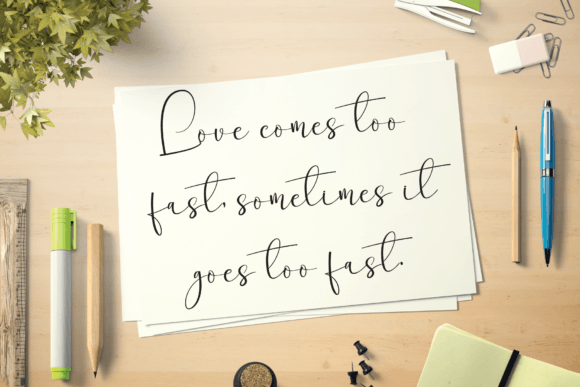 Love comes too
fast, sometimes it
goes too fast.